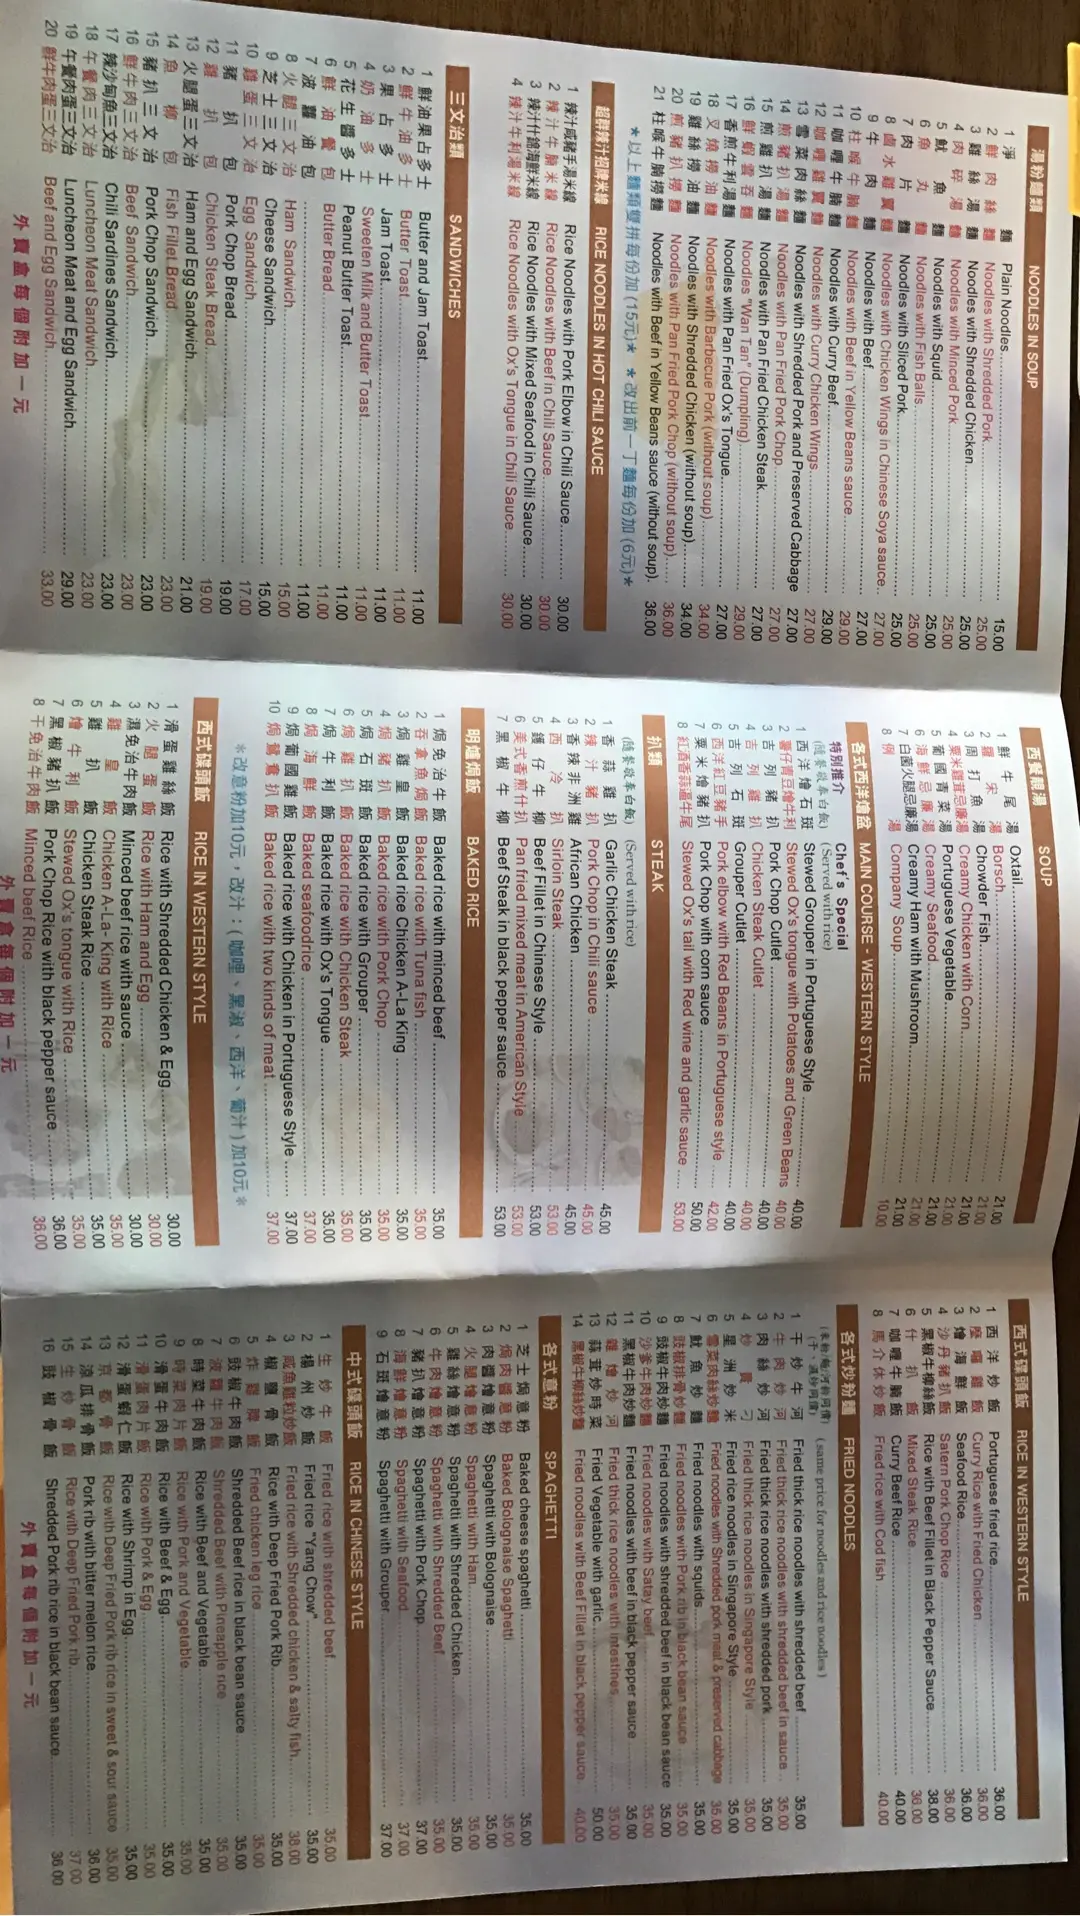 湯粉麵類 NOODLES IN SOUP
1 淨麵 Plain Noodles 15.00
2 鮮肉絲麵 Noodles with Shredded Pork 25.00
3 雞絲湯麵 Noodles with Shredded Chicken 25.00
4 肉碎湯麵 Noodles with Minced Pork 25.00
5 魷魚麵 Noodles with Squid 25.00
6 魚丸麵 Noodles with Fish Balls 25.00
7 肉片麵 Noodles with Sliced Pork 25.00
8 鹵水雞翼麵 Noodles with Chicken Wings in Chinese Soya sauce 27.00
9 牛肉麵 Noodles with Beef 27.00
10 柱喉牛腩麵 Noodles with Beef in Yellow Beans sauce 29.00
11 咖喱牛腩麵 Noodles with Curry Beef 29.00
12 咖喱雞翼麵 Noodles with Curry Chicken Wings 27.00
13 雪菜肉絲麵 Noodles with Shredded Pork and Preserved Cabbage 27.00
14 煎豬扒湯麵 Noodles with Pan Fried Pork Chop 27.00
15 煎雞扒湯麵 Noodles with Pan Fried Chicken Steak 27.00
16 鮮蝦雲吞麵 Noodles "Wan Tan" (Dumpling) 29.00
17 香煎牛利湯麵 Noodles with Pan Fried Ox's Tongue 27.00
18 叉燒撈油麵 Noodles with Barbecue Pork (without soup) 34.00
19 雞絲撈油麵 Noodles with Shredded Chicken (without soup) 34.00
20 煎豬扒撈麵 Noodles with Pan Fried Pork Chop (without soup) 36.00
21 柱喉牛腩撈麵 Noodles with Beef in Yellow Beans sauce (without soup) 36.00
★以上麵類雙拼每份加(15元)★ ★改出前一丁麵每份加(6元)★
超群辣汁招牌米線 RICE NOODLES IN HOT CHILI SAUCE
1 辣汁咸豬手湯米線 Rice Noodles with Pork Elbow in Chili Sauce 30.00
2 辣汁牛腩米線 Rice Noodles with Beef in Chili Sauce 30.00
3 辣汁什錦海鮮米線 Rice Noodles with Mixed Seafood in Chili Sauce 30.00
4 辣汁牛利湯米線 Rice Noodles with Ox's Tongue in Chili Sauce 30.00
三文治類 SANDWICHES
1 鮮油果占多士 Butter and Jam Toast 11.00
2 鮮牛油多士 Butter Toast 11.00
3 果占多士 Jam Toast 11.00
4 奶油多士 Sweeten Milk and Butter Toast 11.00
5 花生醬多士 Peanut Butter Toast 11.00
6 鮮油餐包 Butter Bread 11.00
7 波蘿油包 11.00
8 火腿三文治 Ham Sandwich 15.00
9 芝士三文治 Cheese Sandwich 15.00
10 雞蛋三文治 Egg Sandwich 17.00
11 豬扒包 Pork Chop Bread 19.00
12 雞扒包 Chicken Steak Bread 19.00
13 火腿蛋三文治 Ham and Egg Sandwich 21.00
14 魚柳包 Fish Fillet Bread 23.00
15 豬扒三文治 Pork Chop Sandwich 23.00
16 鮮牛肉三文治 Beef Sandwich 23.00
17 辣沙甸魚三文治 Chili Sardines Sandwich 23.00
18 午餐肉三文治 Luncheon Meat Sandwich 23.00
19 午餐肉蛋三文治 Luncheon Meat and Egg Sandwich 29.00
20 鮮牛肉蛋三文治 Beef and Egg Sandwich 33.00
外賣盒每個附加一元
西餐靚湯 SOUP
1 鮮牛尾湯 Oxtail 21.00
2 羅宋湯 Borsch 21.00
3 周打魚湯 Chowder Fish 21.00
4 粟米雞茸忌廉湯 Creamy Chicken with Corn 21.00
5 葡國青菜湯 Portuguese Vegetable 21.00
6 海鮮忌廉湯 Creamy Seafood 21.00
7 白菌火腿忌廉湯 Creamy Ham with Mushroom 21.00
8 例湯 Company Soup 10.00
各式西洋燴盆 MAIN COURSE - WESTERN STYLE
特別推介 Chef's Special
(隨餐敬奉白飯) (Served with rice)
1 西洋燴石斑 Stewed Grouper in Portuguese Style 40.00
2 薯仔青豆燴牛利 Stewed Ox's tongue with Potatoes and Green Beans 40.00
3 吉列豬扒 Pork Chop Cutlet 40.00
4 吉列雞扒 Chicken Steak Cutlet 40.00
5 吉列石斑 Grouper Cutlet 40.00
6 西洋紅豆豬手 Pork elbow with Red Beans in Portuguese style 42.00
7 粟米燴豬扒 Pork Chop with corn sauce 50.00
8 紅酒香蒜逼牛尾 Stewed Ox's tail with Red wine and garlic sauce 53.00
扒類 STEAK
(隨餐敬奉白飯) (Served with rice)
1 香蒜雞扒 Garlic Chicken Steak 45.00
2 辣汁豬扒 Pork Chop in Chili sauce 45.00
3 香辣非洲雞 African Chicken 45.00
4 西冷扒 Sirloin Steak 53.00
5 鑊仔牛柳 Beef Fillet in Chinese Style 53.00
6 美式香煎什扒 Pan fried mixed meat in American Style 53.00
7 黑椒牛柳 Beef Steak in black pepper sauce 53.00
明爐焗飯 BAKED RICE
1 焗免治牛飯 Baked rice with minced beef 35.00
2 吞拿魚焗飯 Baked rice with Tuna fish 35.00
3 焗雞皇飯 Baked rice Chicken A-La King 35.00
4 焗豬扒飯 Baked rice with Pork Chop 35.00
5 焗石斑飯 Baked rice with Grouper 35.00
6 焗雞扒飯 Baked rice with Chicken Steak 35.00
7 焗牛利飯 Baked rice with Ox's Tongue 35.00
8 焗海鮮飯 Baked seafoodrice 37.00
9 焗葡國雞飯 Baked rice with Chicken in Portuguese Style 37.00
10 焗鴛鴦扒飯 Baked rice with two kinds of meat 37.00
＊改意粉加10元，改汁：(咖哩、黑淑、西洋、葡汁)加10元＊
西式碟頭飯 RICE IN WESTERN STYLE
1 滑蛋雞絲飯 Rice with Shredded Chicken & Egg 30.00
2 火腿蛋飯 Rice with Ham and Egg 30.00
3 濕免治牛肉飯 Minced beef rice with sauce 30.00
4 雞皇飯 Chicken A-La- King with Rice 35.00
5 雞扒飯 Chicken Steak Rice 35.00
6 燴牛利飯 Stewed Ox's tongue with Rice 35.00
7 黑椒豬扒飯 Pork Chop Rice with black pepper sauce 36.00
8 干免治牛肉飯 Minced beef Rice 36.00
外賣盒每個附加一元
西式碟頭飯 RICE IN WESTERN STYLE
1 西洋炒飯 Portuguese fried rice 36.00
2 喼喱雞飯 Curry Rice with Fried Chicken 36.00
3 燴海鮮飯 Seafood Rice 36.00
4 沙丹豬扒飯 Satern Pork Chop Rice 36.00
5 黑椒牛柳絲飯 Rice with Beef Fillet in Black Pepper Sauce 36.00
6 什扒飯 Mixed Steak Rice 36.00
7 咖喱牛腩飯 Curry Beef Rice 40.00
8 馬介休炒飯 Fried rice with Cod fish 40.00
各式炒粉麵 FRIED NOODLES
(same price for noodles and rice noodles)
1 干炒牛河 Fried thick rice noodles with shredded beef 35.00
2 牛肉炒河 Fried thick rice noodles with shredded beef in sauce 35.00
3 肉絲炒河 Fried thick rice noodles with shredded pork 35.00
4 炒貴刁 Fried thick rice noodles in Singapore Style 35.00
5 星洲炒米 Fried rice noodles in Singapore Style 35.00
6 雪菜肉絲炒麵 Fried noodles with Shredded pork meat & preserved cabbage 35.00
7 魷魚炒麵 Fried noodles with squids 35.00
8 豉椒排骨炒麵 Fried noodles with Pork rib in black bean sauce 35.00
9 豉椒牛肉炒麵 Fried noodles with shredded beef in black bean sauce 35.00
10 沙爹牛肉炒麵 Fried noodles with Satay beef 35.00
11 黑椒牛肉炒麵 Fried noodles with beef in black pepper sauce 35.00
12 雞燴炒河 Fried thick rice noodles with intestines 35.00
13 蒜茸炒時菜 Fried Vegetable with garlic 50.00
14 黑椒牛柳絲炒麵 Fried noodles with Beef Fillet in black pepper sauce 40.00
各式意粉 SPAGHETTI
1 芝士焗意粉 Baked cheese spaghetti 35.00
2 焗肉醬意粉 Baked Bolognaise Spaghetti 35.00
3 肉醬燴意粉 Spaghetti with Bolognaise 35.00
4 火腿燴意粉 Spaghetti with Ham 35.00
5 雞絲燴意粉 Spaghetti with Shredded Chicken 35.00
6 牛肉燴意粉 Spaghetti with Shredded Beef 35.00
7 豬扒燴意粉 Spaghetti with Pork Chop 37.00
8 海鮮燴意粉 Spaghetti with Seafood 37.00
9 石斑燴意粉 Spaghetti with Grouper 37.00
中式碟頭飯 RICE IN CHINESE STYLE
1 生炒牛飯 Fried rice with shredded beef 35.00
2 楊州炒飯 Fried rice "Yang Chow" 35.00
3 咸魚雞粒炒飯 Fried rice with Shredded chicken & salty fish 38.00
4 椒鹽骨飯 Rice with Deep Fried Pork Rib 35.00
5 炸雞脾飯 Fried chicken leg rice 35.00
6 豉椒牛肉飯 Shredded Beef rice in black bean sauce 35.00
7 波蘿牛肉飯 Shredded Beef with Pineapple rice 35.00
8 時菜牛肉飯 Rice with Beef and Vegetable 35.00
9 時菜肉片飯 Rice with Pork and Vegetable 35.00
10 滑蛋牛肉飯 Rice with Beef & Egg 35.00
11 滑蛋肉片飯 Rice with Pork & Egg 35.00
12 滑蛋蝦仁飯 Rice with Shrimp in Egg 35.00
13 京都骨飯 Rice with Deep Fried Pork rib rice in sweet & sour sauce 35.00
14 涼瓜排骨飯 Pork rib with bitter melon rice 36.00
15 生炒骨飯 Rice with Deep Fried Pork rib 37.00
16 豉椒骨飯 Shredded Pork rib rice in black bean sauce 36.00
外賣盒每個附加一元